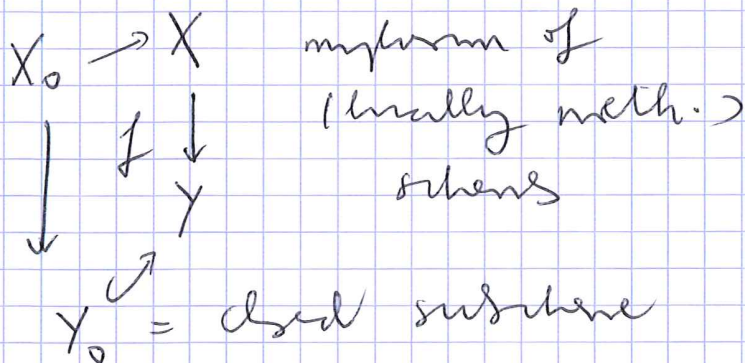 X₀ → X morphism of
f (locally noeth.)
Y schemes
Y₀ = closed subscheme